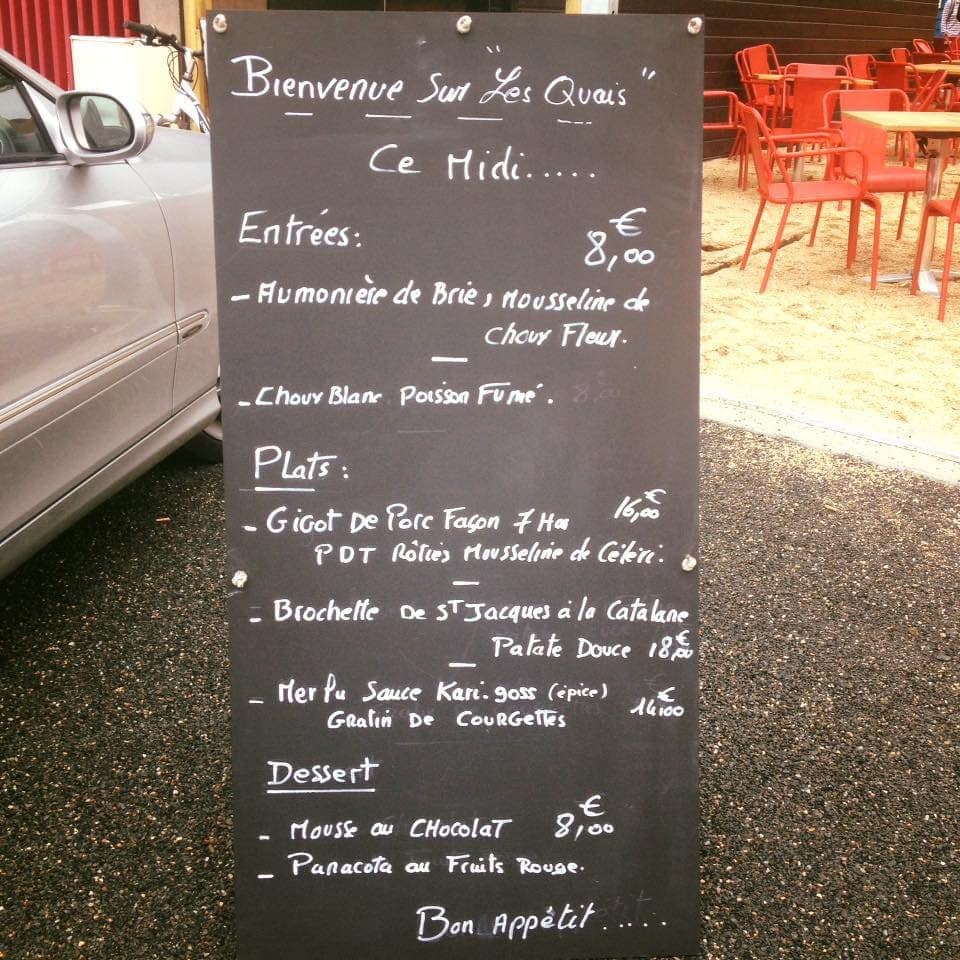 Bienvenue Sur "Les Quais"
Ce Midi.....
Entrées: 8,00 €
- Aumonière de Brie, Mousseline de
Choux Fleur.
- Choux Blanc Poisson Fumé.
Plats:
- Gigot De Porc Façon 7 Hrs 16,00 €
PDT Rôties Mousseline de Céleri.
- Brochette De St Jacques à la Catalane
Patate Douce 18,00 €
- Merlu Sauce Kari.goss (épice) 14,00 €
Gratin De Courgettes
Dessert
- Mousse au Chocolat 8,00 €
- Panacota au Fruits Rouge.
Bon Appétit.....